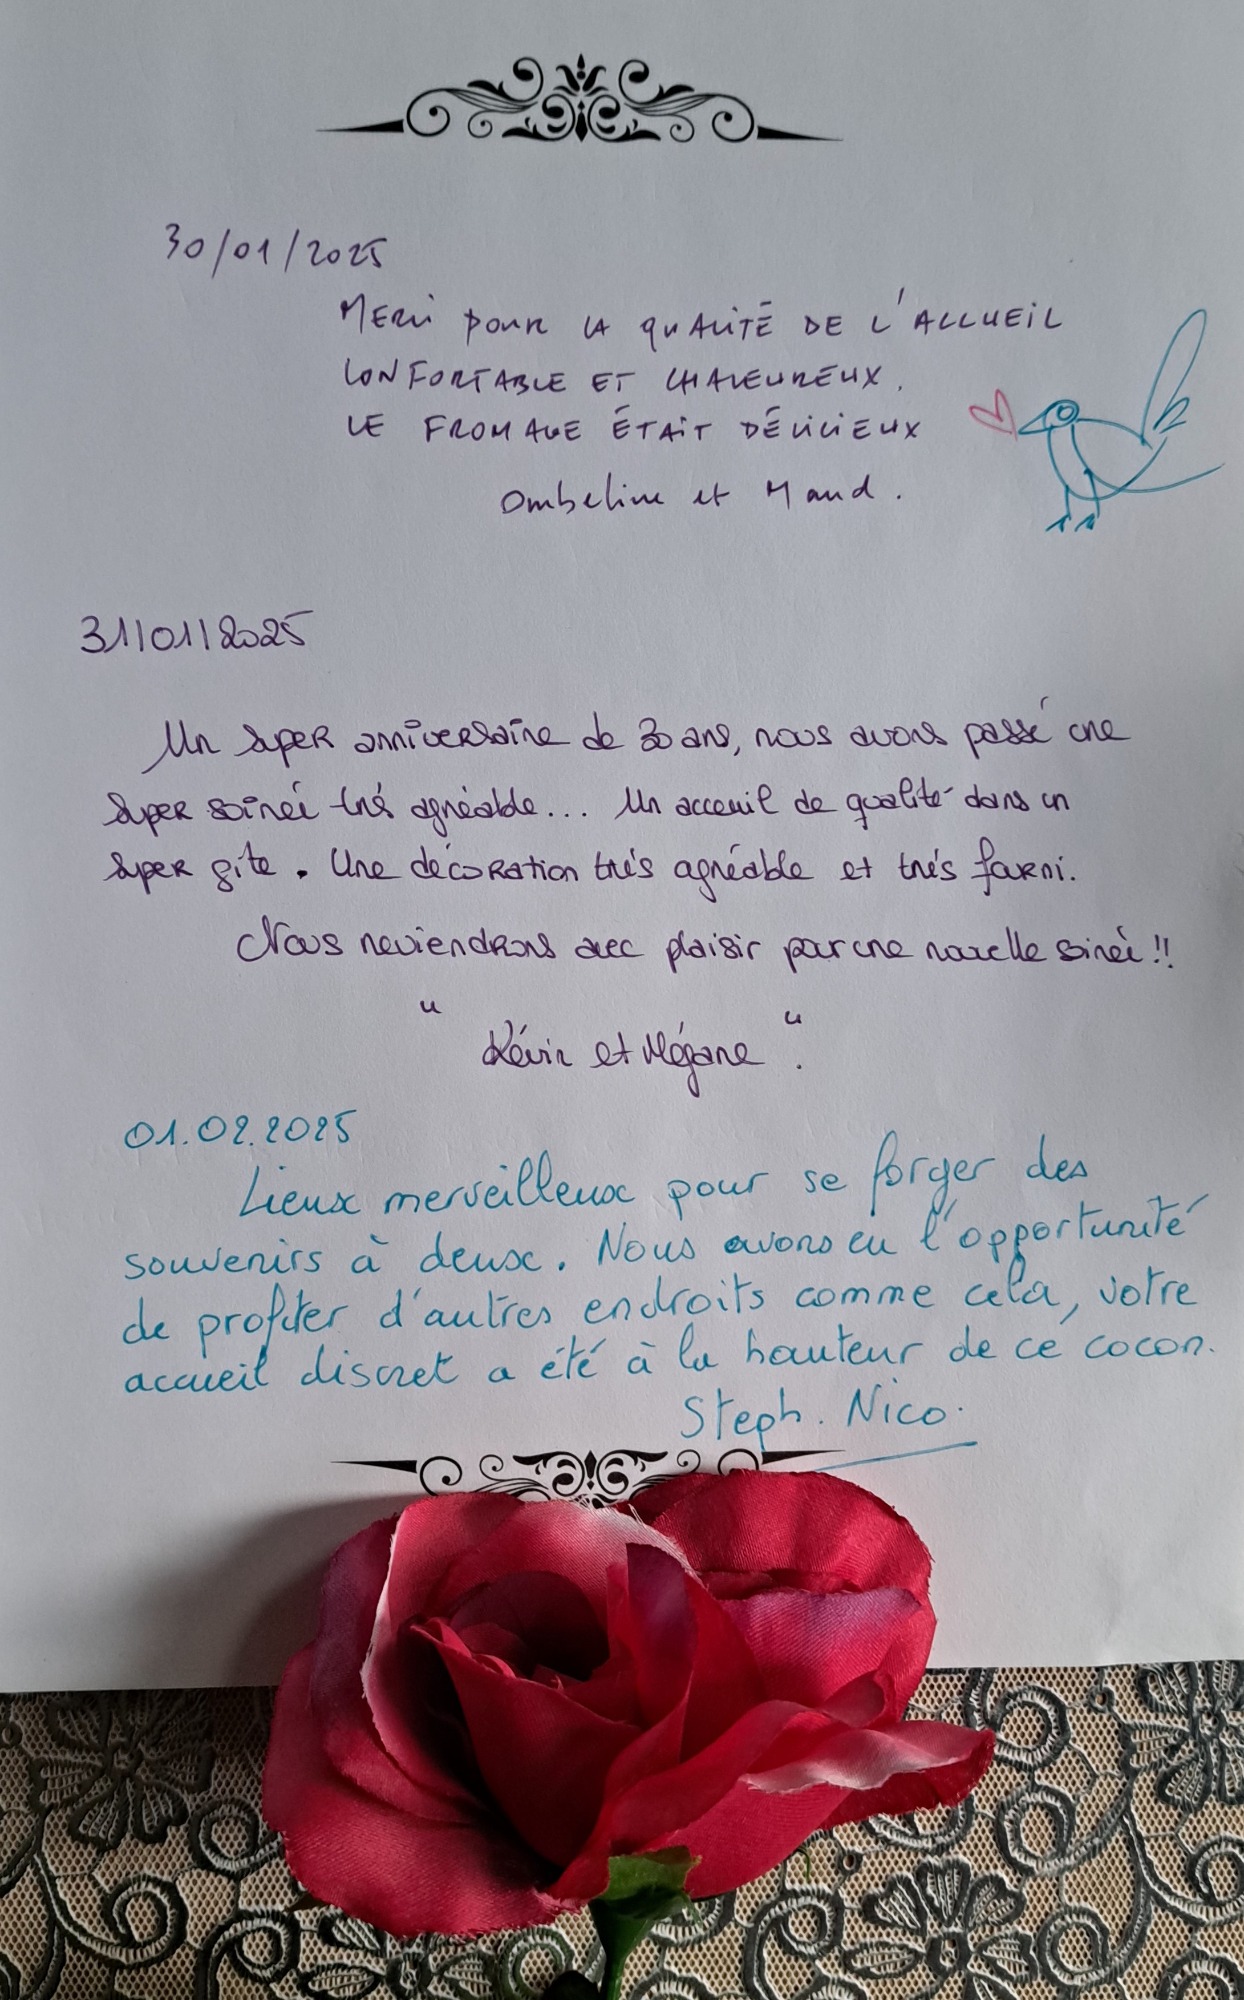 30/01/2025
MERCi pour LA QUALiTÉ DE L'ACCUEiL
CONFORTABLE ET CHALEUREUX.
LE FROMAGE ÉTAiT DÉLiCiEUX
Ombeline et Maud.
31/01/2025
Un super anniversaire de 30 ans, nous avons passé une
super soirée trés agréable... Un acceuil de qualité dans un
super gîte. Une décoration trés agréable et trés farni.
Nous reviendrons avec plaisir pour une nouvelle soirée !!
" Kévin et Mégane ".
01.02.2025
Lieux merveilleux pour se forger des
souvenirs à deux. Nous avons eu l'opportunité
de profiter d'autres endroits comme cela, votre
accueil discret a été à la hauteur de ce cocon.
Steph. Nico.